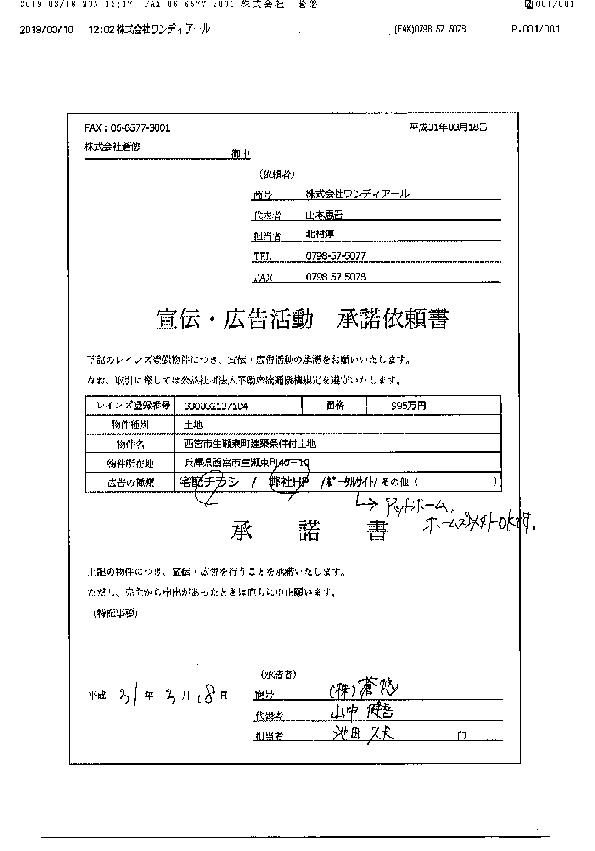 2019/03/18 12:02 株式会社ワンディアール (FAX)0798-57-5078 P.001/001
FAX：06-6577-3001 平成31年03月18日
株式会社蒼悠 御中
（依頼者）
商号 株式会社ワンディアール
代表者
担当者 北村淳
TEL 0798-57-5077
FAX 0798-57-5078
宣伝・広告活動 承諾依頼書
下記のレインズ登録物件につき、宣伝・広告活動の承諾をお願いいたします。
なお、取引に際しては公益社団法人不動産流通機構規定を遵守いたします。
レインズ登録番号 価格 995万円
物件種別 土地
物件名 西宮市生瀬東町建築条件付土地
物件所在地 兵庫県西宮市生瀬東町40-10
広告の種類 宅配チラシ / 弊社HP / ポータルサイト / その他（ ）
アットホーム、
承 諾 書
上記の物件につき、宣伝・広告を行うことを承諾いたします。
ただし、売主から申出があったときは直ちに中止願います。
（特記事項）
（承諾者）
平成 31 年 3 月 18 日
商号 （株）蒼悠
代表者 山中 健吾
担当者 池田